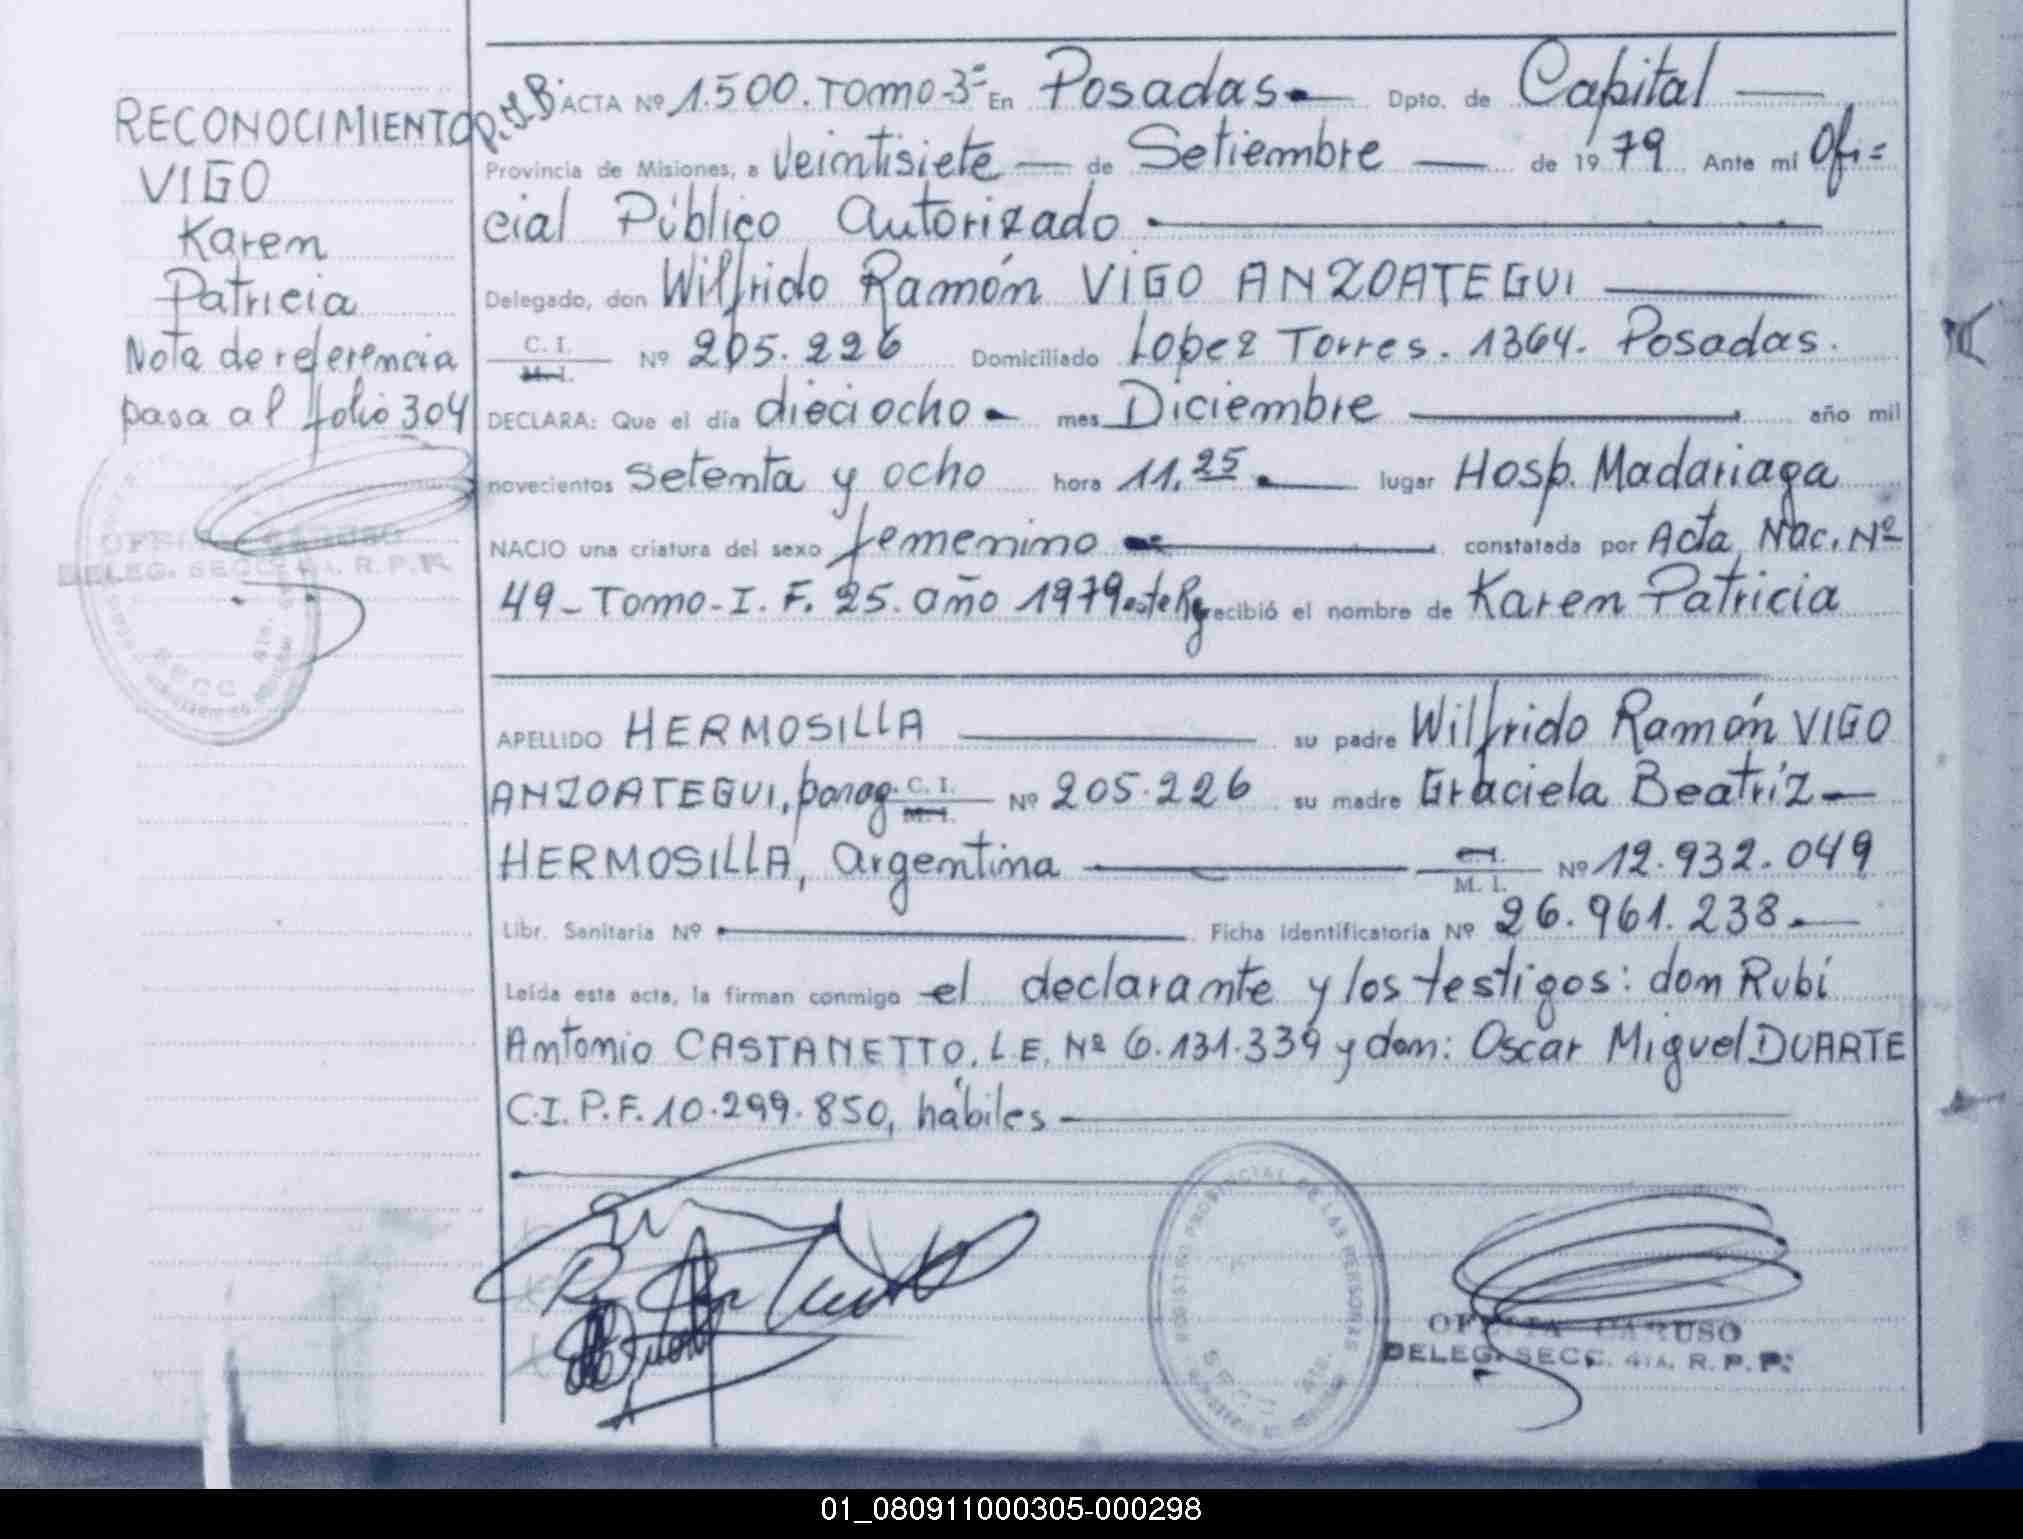 RECONOCIMIENTO
VIGO
Karen
Patricia
Nota de referencia
pasa al folio 304
OFELIA CARUSO
DELEG. SECC. 4ta. R. P. P.
ACTA Nº 1.500. Tomo-3º En Posadas. Dpto. de Capital
Provincia de Misiones, a veintisiete de Setiembre de 1979 Ante mi Ofi=
cial Público Autorizado
Delegado, don Wilfrido Ramón VIGO ANZOATEGUI
C. I. M. I. Nº 205.226 Domiciliado Lopez Torres. 1364. Posadas.
DECLARA: Que el día dieciocho mes Diciembre año mil
novecientos setenta y ocho hora 11,25 lugar Hosp. Madariaga
NACIO una criatura del sexo femenino constatada por Acta Nac. Nº
49-Tomo-I. F. 25. año 1979 este Rg recibió el nombre de Karen Patricia
APELLIDO HERMOSILLA su padre Wilfrido Ramón VIGO
ANZOATEGUI, parag. C. I. M. I. Nº 205.226 su madre Graciela Beatriz
HERMOSILLA, argentina C. I. M. I. Nº 12.932.049
Libr. Sanitaria Nº Ficha identificatoria Nº 26.961.238.
Leída esta acta, la firman conmigo el declarante y los testigos: don Rubí
Antonio CASTANETTO. L.E. Nº 6.131.339 y don: Oscar Miguel DUARTE
C.I. P.F. 10.299.850, hábiles
REGISTRO PROVINCIAL DE LAS PERSONAS
SECC. 4ta.
OFELIA CARUSO
DELEG. SECC. 4ta. R. P. P.
01_080911000305-000298